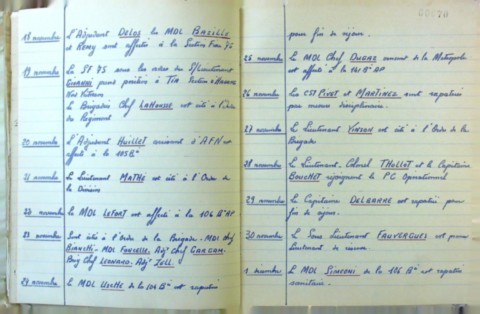 18 novembre L'Adjudant Delos les MDL Bazille
et Remy sont affectés à la Section Fran 75
19 novembre La ST 75 sous les ordres du S/Lieutenant
prend position à
Le Brigadier Chef Lahousse est cité à l'ordre
du Régiment
20 novembre L'Adjudant Huillet revenant d'AFN est
affecté à la 105 Bie
21 novembre Le Lieutenant Mathé est cité à l'Ordre de
la Division
22 novembre Le MDL Lefort est affecté à la 106 Bie AP
23 novembre Sont cités à l'Ordre de la Brigade - MDL Chef
MDL Chef
Brig Chef Leonard - Adj
24 novembre Le MDL de la 104 Bie est rapatrié
00070
pour fin de séjour.
25 novembre Le MDL Chef Dugas venant de la Métropole
est affecté à la Bie AP
26 novembre Le CST Pivet et Martinez sont rapatriés
par mesure disciplinaire.
27 novembre Le Lieutenant Vinson est cité à l'Ordre de la
Brigade
28 novembre Le Lieutenant-Colonel Thollet et le Capitaine
Bouchet rejoignent le PC Opérationnel
29 novembre Le Capitaine Delbarre est rapatrié pour
fin de séjour.
30 novembre Le Sous Lieutenant Fauvergues est promu
Lieutenant de réserve
1 Le MDL Simeoni de la 106 Bie est rapatrié
sanitaire.